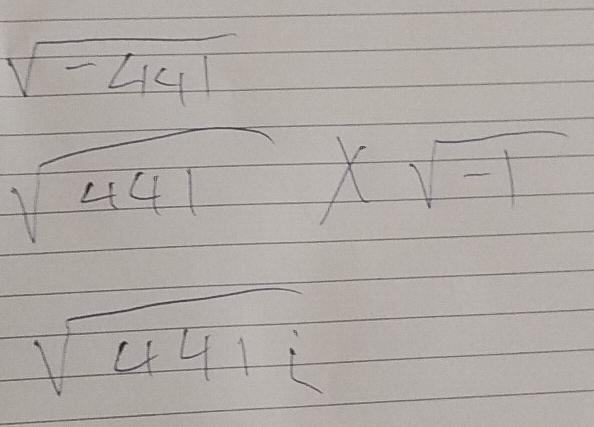 √-441
√441 × √-1
√441 i